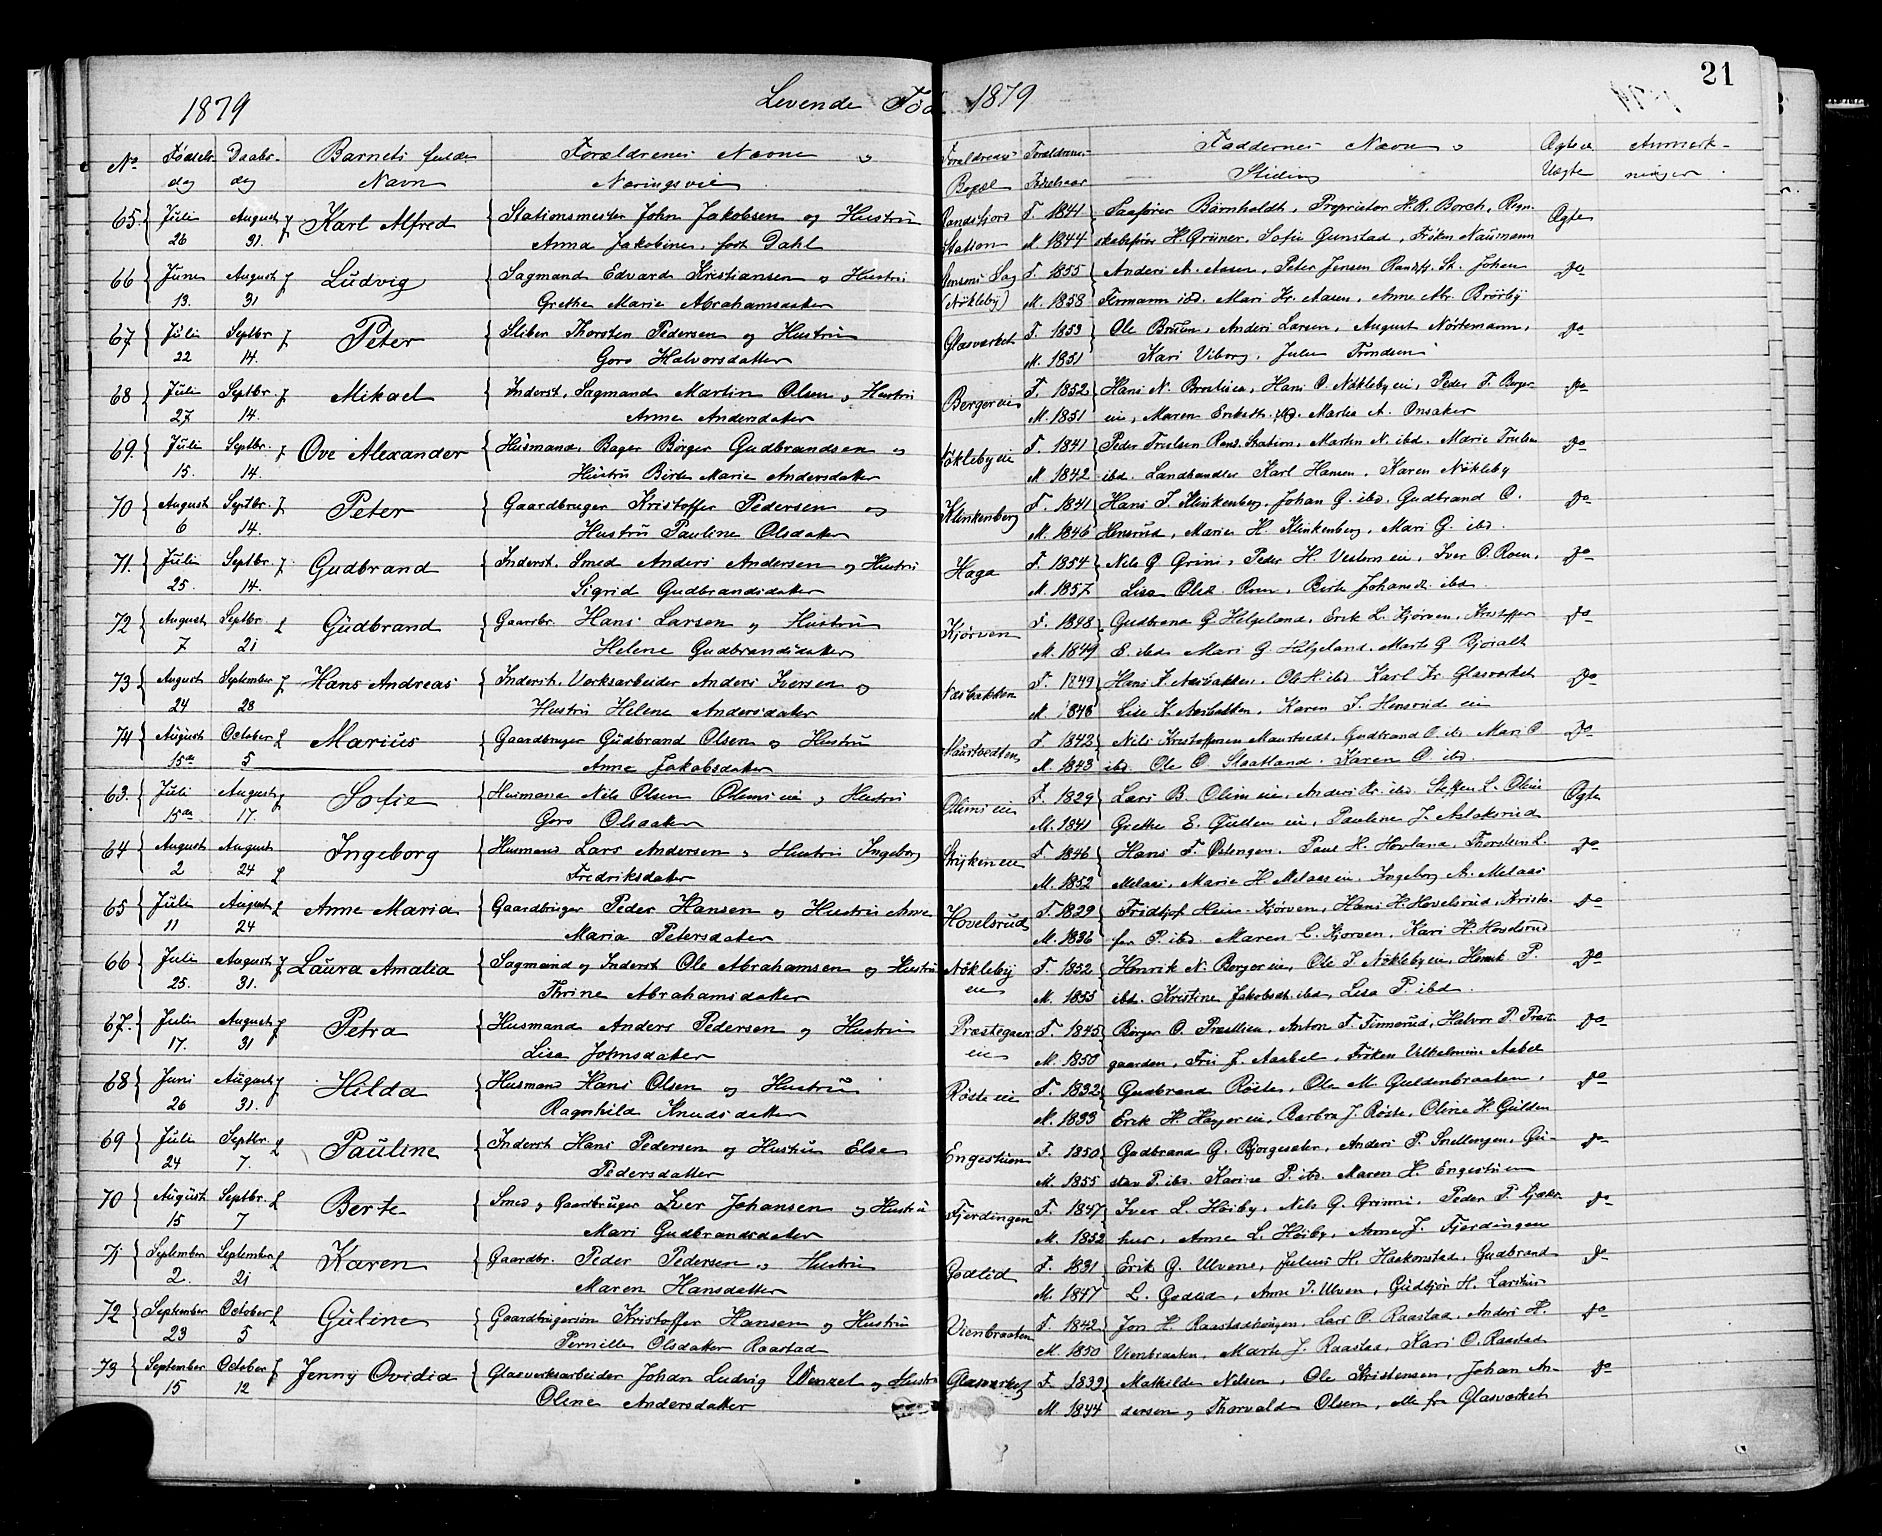 21
1879 Levende Fød 1879
No Fødsels- Daabs- Barnets fulde Forældrenes Navne o Forældrenes Forældrenes Faddernes Navne o Ægte el Anmærk-
dag dag Navn Næringsvei Bopæl Fødselsaar Stilling Uægte ninger.
65. Juli August Karl Alfred Stationsmester John Jakobsen og Hustru Randsfjord F. 1841 Barnholdt, Proprietær H. R. Borch, Regn- Ægte
26 31. Anna Jakobine, født Dahl Station M. 1844 skabsfører H. Grüner, Sofie Gunstad, Frøken Naumann
66 June August Ludvig Sagmand Edvard Kristiansen og Hustru Jensens Sag F. 1855 Anders A. Aasen, Peter Jensen Randsfj. St. Johan do
13. 31 Grethe Marie Abrahamsdatter (Nøkleby) M. 1858 Fermann ibd. Mari Kr. Aasen, Anne Mr. Brørby
67 Juli Septbr. Peter Sliber Thorsten Pedersen og Hustru Glasværket F. 1853 Ole Bruun, Anders Larsen, August Nortmann, do
22 14. Goro Halvorsdatter M. 1851 Kari Viborg, Julie Trondsen
68 Juli Septbr. Mikael Inderst, Sagmand Martin Olsen og Hustru Bergereie F. 1852 Hans N. Hans O. Nøklebyeie, Peder F. Berger- do
27 14. Anne Andersdatter M. 1851 eie, Maren Eriksdt. ibd. Marthe A. Onsaker
69. Juli Septbr. Ove Alexander Husmand, Bager Børger Gudbrandsen og Nøklebyeie F. 1841 Peder Trulsen Rans. Station, Martin N. ibd. Marie Trulsen do
15. 14. Hustru Berte Marie Andersdatter M. 1842 ibd. Landhandler Karl Hansen, Karen Nøkleby
70 August Septbr. Peter Gaardbruger Kristoffer Pedersen og Klinkenberg F. 1841 Hans J. Klinkenberg, Johan G. ibd. Gudbrand O. do
6 14. Hustru Pauline Olsdatter M. 1846 Hensrud, Maren H. Klinkenberg, Mari G. ibd.
71. Juli Septbr. Gudbrand Inderst. Smed Anders Andersen og Hustru Haga F. 1854 Nils G. Grini, Peder H. Vestern eie, Iver O. Roen, do
25. 14. Sigrid Gudbrandsdatter M. 1857 Lisa Olsd. Roen, Berte Johansd. ibd.
72 August Septbr. Gudbrand Gaardbr. Hans Larsen og Hustru Kjørven F. 1848 Gudbrand G. Helgeland, Erik L. Kjørven, Kristoffer do
7 21 Helene Gudbrandsdatter M. 1849 E. ibd. Mari G. Helgeland. Marte G. Bjoralt
73 August September Hans Andreas Inderst. Værksarbeider Anders Iversen og Aasbakken F. 1849 Hans K. Aasbakken, Ole H. ibd. Karl Kr. Glasværket do
24 28 Hustru Helene Andersdatter M. 1848 Lise K. Aasbakken, Karen J. Hensrud eie
74 August October Marius Gaardbruger Gudbrand Olsen og Hustru Maurtvedten F. 1842 Nils Kristoffersen Maurtvedt, Gudbrand O. ibd. Mari O. do
15de 5 Anne Jakobsdatter M. 1843 ibd. Ole O. Slaatland. Karen O. ibd.
63. Juli August Sofie Husmand Nils Olsen Olimseie og Hustru Olimseie F. 1829 Lars B. Olimseie, Anders Kr. ibd. Steffen L. Olim Ægte
15de 17. Goro Olsdatter M. 1841 Grethe E. Gulden eie, Pauline J. Aslaksrud
64 August August Ingeborg Husmand Lars Andersen og Hustru Ingeborg Strykeneie F. 1846 Hans F. Østengen. Paul H. Hovland, Thorstein L. do
2 24 Fredriksdatter M. 1852 Melaas, Marie H. Melaaseie, Ingeborg A. Melaas
65 Juli August Anne Maria Gaardbruger Peder Hansen og Hustru Anne Hovelsrud F. 1829 Fridtjof Kjørven, Hans H. Hovelsrud, Kristo- do
11 24 Maria Petersdatter M. 1836 fer P. ibd. Maren L. Kjørven, Kari H. Hovelsrud
66 Juli August Laura Amalia Sagmand og Inderst Ole Abrahamsen og Hustru Nøkleby F. 1852 Henrik N. Bergereie, Ole J. Nøklebyeie, Henrik P. do
25. 31. Thrine Abrahamsdatter eie M. 1855 ibd. Kristine Jakobsdt. ibd, Lisa P. ibd.
67. Juli August Petra Husmand Anders Pedersen og Hustru Præstegaar F. 1845 Børger O. Præstlien, Anton T. Finnerud, Halvor P. Præst- do
17. 31 Lisa Johnsdatter eie M. 1850 gaarden, Fru J. Aabel, Frøken Vilhelmine Aabel
68 Juni August Hilda Husmand Hans Olsen og Hustru Røsteeie F. 1832 Gudbrand Røste, Ole M. Guldenbraaten, do
26 31. Ragnhild Knudsdatter M. 1833 Erik H. Hagereie, Barbra J. Røste, Oline H. Gulden
69 Juli Septbr. Pauline Inderst Hans Pedersen og Hustru Else Engestuen F. 1850 Gudbrand G. Bjørgeseter, Anders P. Snellengen, Gu- do
24 7. Pedersdatter M. 1855 stav P. ibd. Karine P. ibd. Maren H. Engestuen
70 August Septbr. Berte Smed og Gaardbruger Iver Johansen og Hustru Fjerdingen F. 1847 Iver L. Høiby, Nils G. Grinni, Peder P. do
15 7 Mari Gudbrandsdatter M. 1852 hus, Anne L. Høiby, Anne J. Fjerdingen
71 September September Karen Gaardbr. Peder Pedersen og Hustru Godlid F. 1831 Erik G. Ulvene, Julius H. Haakonstad, Gudbrand do
2. 21 Maren Hansdatter M. 1847 L. Godlid, Anne P. Ulven, Gudbjør H.
72 September October Guline Gaardbrugersøn Kristoffer Hansen og Hustru Vienbraaten F. 1842 Jon H. Raastadhøugen, Lars O. Raastad, Anders H. do
23 5 Pernille Olsdatter Raastad M. 1850 Vienbraaten, Marte J. Raastad, Kari O. Raastad
73 September October Jenny Ovidia Glasværksarbeider Johan Ludvig Wenzel og Hustru Glasværket F. 1839 Mathilde Nilsen, Ole Kristensen, Johan An- do
15 12 Oline Andersdatter M. 1844 dersen og Thorvald Olsen, alle fra Glasværket